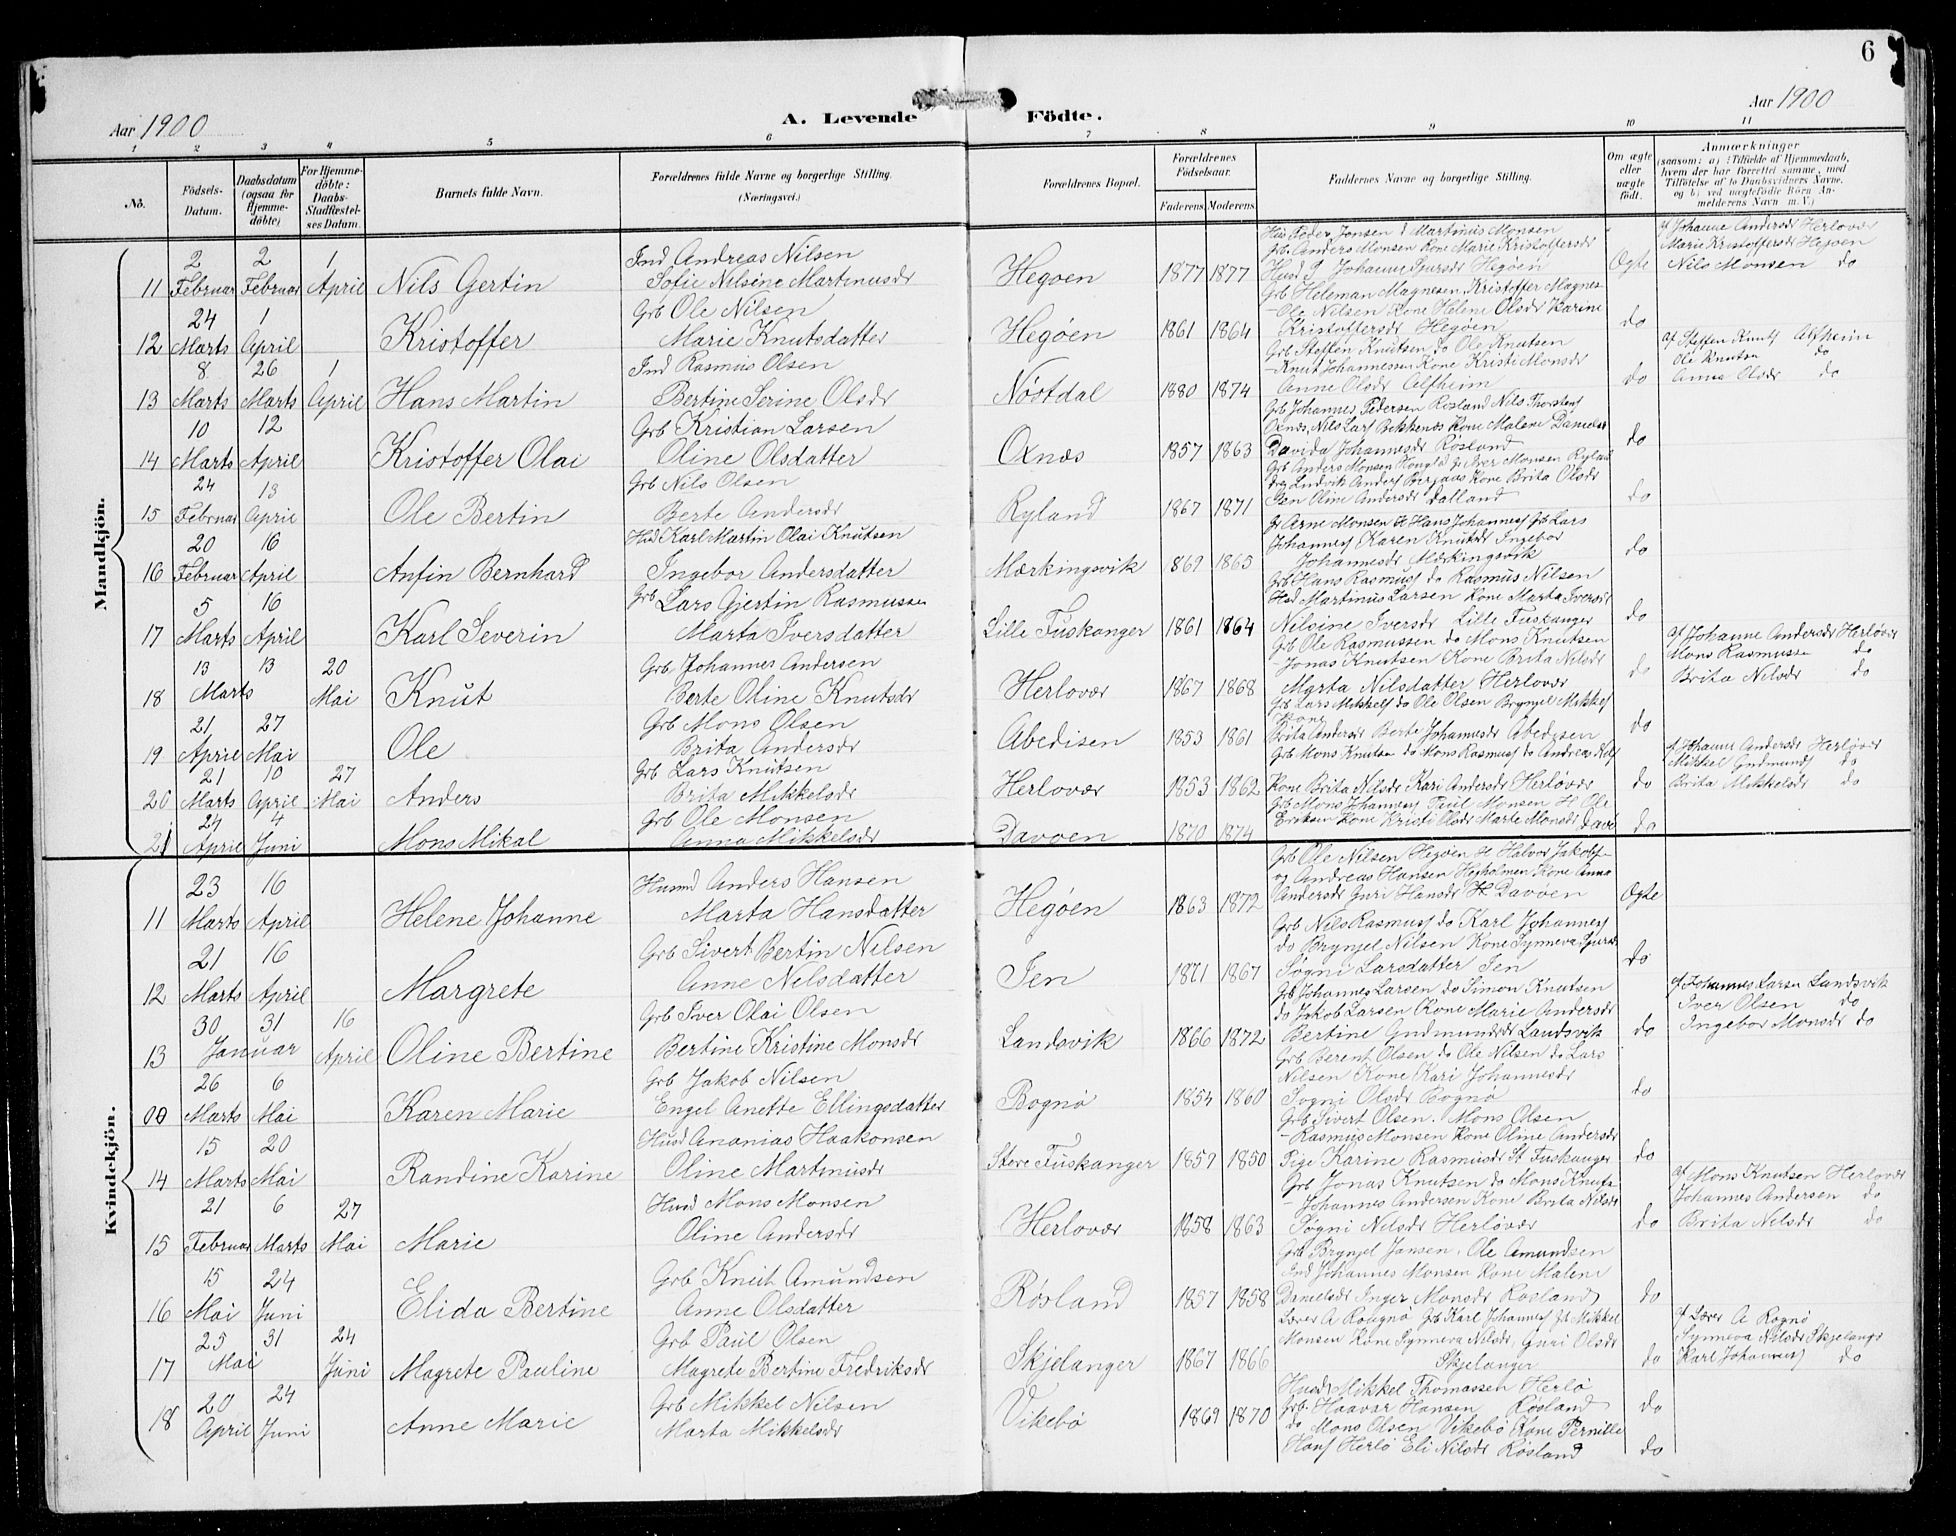 6
Aar 1900
A. Levende Födte.
Aar 1900
1 2 3 4 5 6 7 8 9 10 11
No.
Födsels-
Datum.
Daabsdatum
(ogsaa for
Hjemme-
döbte)
For Hjemme-
döbte:
Daabs-
Stadfæstel-
ses Datum.
Barnets fulde Navn.
Forældrenes fulde Navne og borgerlige Stilling.
(Næringsvei.)
Forældrenes Bopæl.
Forældrenes
Födselsaar.
Faderens. Moderens.
Faddernes Navne og borgerlige Stilling.
Om ægte
eller
uægte
födt.
Anmærkninger
(saasom: a) i Tilfælde af Hjemmedaab,
hvem der har forrettet samme, med
Tilföielse af to Daabsvidners Navne,
og b) ved uægtefödte Börn An-
melderens Navn m. V.)
Mandkjön.
11
2 Februar
2 Februar
1 April
Nils Gertin
Ind Andreas Nilsen
Sofie Nilsine Martinusdr
Hegöen
1877 1877
Grb Anders Monsen Kone Marie Kristoffersdr
Ægte
af Johanne Andersdr Herlovær
Marie Kristoffersdr Hegöen
Nils Monsen do
12
24 Marts
1 April
Kristoffer
Grb Ole Nilsen
Marie Knutsdatter
Hegöen
1861 1864
Grb Heleman Magnesen, Kristoffer Magnes
- Ole Nilsen Kone Helene Olsdr Karine
Kristoffersdr Hegöen
do
13
8 Marts
26 Marts
1 April
Hans Martin
Ind Rasmus Olsen
Bertine Serine Olsdr
Nöstdal
1880 1874
Grb Steffen Knutsen do Ole Knutsen
- Knut Johannessen Kone Kristi Monsdr
Anne Olsdr Alfheim
do
af Steffen Knuts Alfheim
Ole Knutsen do
Anna Olsdr do
14
10 Marts
12 April
Kristoffer Olai
Grb Kristian Larsen
Oline Olsdatter
Oxnæs
1857 1863
Grb Johannes Pedersen Rosland Nils Thorsens
Oxnæs, Nils Lars Bekkenæs Kone Malene Danielsdr
Davida Johannesdr Røsland
do
15
24 Februar
13 April
Ole Bertin
Grb Nils Olsen
Berte Andersdr
Ryland
1867 1871
Iver Monsen Ryland
Kone Brita Olsdr
Jen Oline Andersdr Dalland
do
16
20 Februar
16 April
Anfin Bernhard
Hsd Karl Martin Olai Knutsen
Ingebor Andersdatter
Mærkingsvik
1869 1865
Gr Arne Monsen H Hans Johannes Grb Lars
Johannes Karen Knutsdr Ingebor
Johannesdr Mærkingsvik
do
17
5 Marts
16 April
Karl Severin
Grb Lars Gjertin Rasmussen
Marta Iversdatter
Lille Fuskanger
1861 1864
Grb Hans Rasmuss do Rasmus Nilsen
Hsd Martinus Larsen Kone Marta Iversdr
Nilsine Iversdr Lille Fuskanger
do
18
13 13
Marts
20 Mai
Knut
Grb Johannes Andersen
Berte Oline Knutsdr
Herlovær
1867 1868
Grb Ole Rasmussen do Mons Knutsen
- Jonas Knutsen Kone Brita Nilsdr
Marta Nilsdatter Herlovær
do
af Johanne Andersdr Herlövær
Mons Rasmussen do
Brita Nilsdr do
19
21 April
27 Mai
Ole
Grb Mons Olsen
Brita Andersdr
Abedisen
1853 1861
Grb Lars Mikkels do Ole Olsen Brynjel Mikkels
Kone
Brita Andersdr Berte Johannesdr Abedisen
do
20
21 Marts
10 April
27 Mai
Anders
Grb Lars Knutsen
Brita Mikkelsdr
Herlovær
1853 1862
Grb Mons Knutsen do Mons Rasmuss do Andreas Nils
Kone Brita Nilsdr Kari Andersdr Herlövær
do
af Johanne Andersdr Herlövær
Mikkel Gudmunds do
Brita Mikkelsdr do
21
24 April
4 Juni
Mons Mikal
Grb Ole Monsen
Anna Mikkelsdr
Davöen
1870 1874
Grb Mons Johannes Paul Monsen H Ole
Eriksen Kone Kristi Olsdr Marte Monsdr Davö
do
Kvindekjön.
11
23 Marts
16 April
Helene Johanne
Husmd Anders Hansen
Marta Hansdatter
Hegöen
1863 1872
Grb Ole Nilsen Hegöen H Halvor Jakobs
og Andreas Hansen Hejholmen Kone Anna
Andersdr Guri Hansdr H Davöen
Ægte
12
21 Marts
16 April
Margrete
Grb Sivert Bertin Nilsen
Anne Nilsdatter
Jen
1871 1867
Grb Nils Rasmuss do Karl Johannes
do Brynjel Nilsen Kone Synneva Sjursdr
Sögni Larsdatter Jen
do
13
30 31
Januar
16 April
Oline Bertine
Grb Iver Olai Olsen
Bertine Kristine Monsdr
Landsvik
1866 1872
Grb Johannes Larsen do Simon Knutsen
do Jakob Larsen Kone Marie Andersdr
Bertine Gudmundsdr Landsvik
do
af Johannes Larsen Landsvik
Iver Olsen do
Ingebor Monsdr do
00
26 Marts
6 Mai
Karen Marie
Grb Jakob Nilsen
Engel Anette Ellingsdatter
Bognö
1854 1860
Grb Berent Olsen do Ole Nilsen do Lars
Nilsen Kone Kari Johannesdr
Sogni Olsdr Bognö
do
14
15 Marts
20 Mai
Randine Karine
Husd Ananias Haakonsen
Oline Martinusdr
Store Fuskanger
1859 1850
Grb Sivert Olsen. Mons Olsen
- Rasmus Monsen Kone Oline Andersdr
Pige Karine Rasmusdr St Fuskanger
do
15
21 Februar
6 Marts
27 Mai
Marie
Husd Mons Monsen
Oline Andersdr
Herlovær
1858 1863
Grb Jonas Knutsen do Mons Knuts
- Johannes Andersen Kone Brita Nilsdr
Sögni Nilsdr Herlövær
do
af Mons Knutsen Herlovær
Johannes Andersen do
Brita Nilsdr do
16
15 Mai
24 Juni
Elida Bertine
Grb Knut Amundsen
Anne Olsdatter
Røsland
1857 1858
Grb Brynjel Jansen. Ole Amundsen
Ind Johannes Monsen Kone Malene
Danielsdr Inger Monsdr Røsland
do
17
25 31
Mai
24 Juni
Magrete Pauline
Grb Paul Olsen
Magrete Bertine Fredriksdr
Skjelanger
1867 1866
Lærer A Rognø Grb Karl Johannes Gb Mikkel
Monsen Kone Synneva Nilsdr, Guri Olsdr
Skjelanger
do
af Lærer A Rognø
Synneva Nilsdr Skjelanger
Karl Johannes do
18
20 April
24 Juni
Anne Marie
Grb Mikkel Nilsen
Marta Mikkelsdr
Vikebö
1869 1870
Husd Mikkel Thomassen Herlö
Grb Haavar Hansen Røsland
do Mons Olsen Vikebö Kone Pernille
Hans Herlö Eli Nilsdr Røsland
do
do